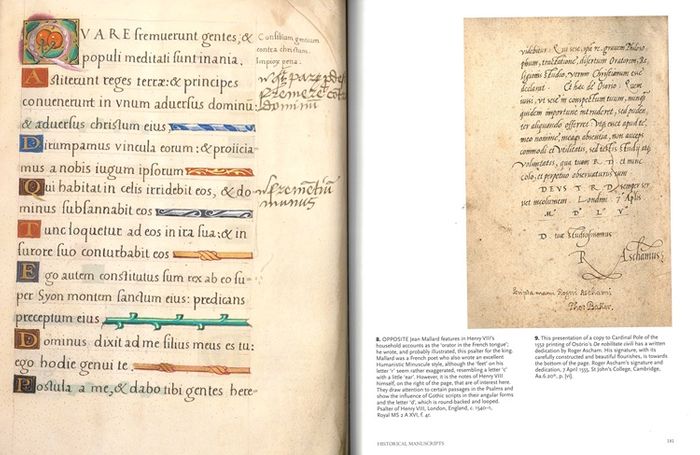 QVARE fremuerunt gentes, &
populi meditati sunt inania.
Astiterunt reges terræ: & principes
conuenerunt in vnum aduersus dominū
& aduersus christum eius
Dirumpamus vincula eorum: & proiicia-
mus a nobis iugum ipsorum
Qui habitat in celis irridebit eos, & do-
minus subsannabit eos
Tunc loquetur ad eos in ira sua: & in
furore suo conturbabit eos
Ego autem constitutus sum rex ab eo su-
per Syon montem sanctum eius: predicans
preceptum eius
Dominus dixit ad me filius meus es tu:
ego hodie genui te
Postula a me, & dabo tibi gentes here-
Consilium gentium
contra christum.
Impior pena.
8. OPPOSITE Jean Mallard features in Henry VIII's
household accounts as the 'orator in the French tongue';
he wrote, and probably illustrated, this psalter for the king.
Mallard was a French poet who also wrote an excellent
Humanistic Minuscule style, although the 'feet' on his
letter 's' seem rather exaggerated, resembling a letter 'c'
with a little 'ear'. However, it is the notes of Henry VIII
himself, on the right of the page, that are of interest here.
They draw attention to certain passages in the Psalms and
show the influence of Gothic scripts in their angular forms
and the letter 'd', which is round-backed and looped.
Psalter of Henry VIII, London, England, c. 1540–1,
Royal MS 2 A XVI, f. 4r.
HISTORICAL MANUSCRIPTS
videbitur. Qui
phum, tractatione, disertum Oratorem, Re-
ligionis studio, verum Christianum esse
declarat. Et hæc de Osorio. Quem
ter aliquando offerret
meo nomine,
commodi et vtilitatis, sed
voluptatis, qua tuam R. D. et nunc
colo, et perpetuo obseruaturus sum
DEVS T R D semper ser
vet incolumem. Londini. 7 Aplis
M D L V
D. tuæ studiosissimus
R Aschamus
Scripta manu Rogeri Aschami
Tho: Baker.
9. This presentation of a copy to Cardinal Pole of the
1552 printing of Osório's De nobilitate civili has a written
dedication by Roger Ascham. His signature, with its
carefully constructed and beautiful flourishes, is towards
the bottom of the page. Roger Ascham's signature and
dedication, 7 April 1555, St John's College, Cambridge,
Aa.6.20*, p. [vi].
141